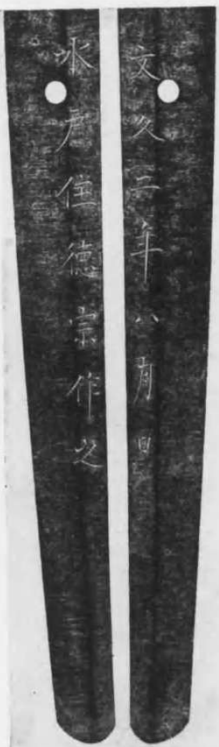 文久三年八月日
水戸住徳宗作之